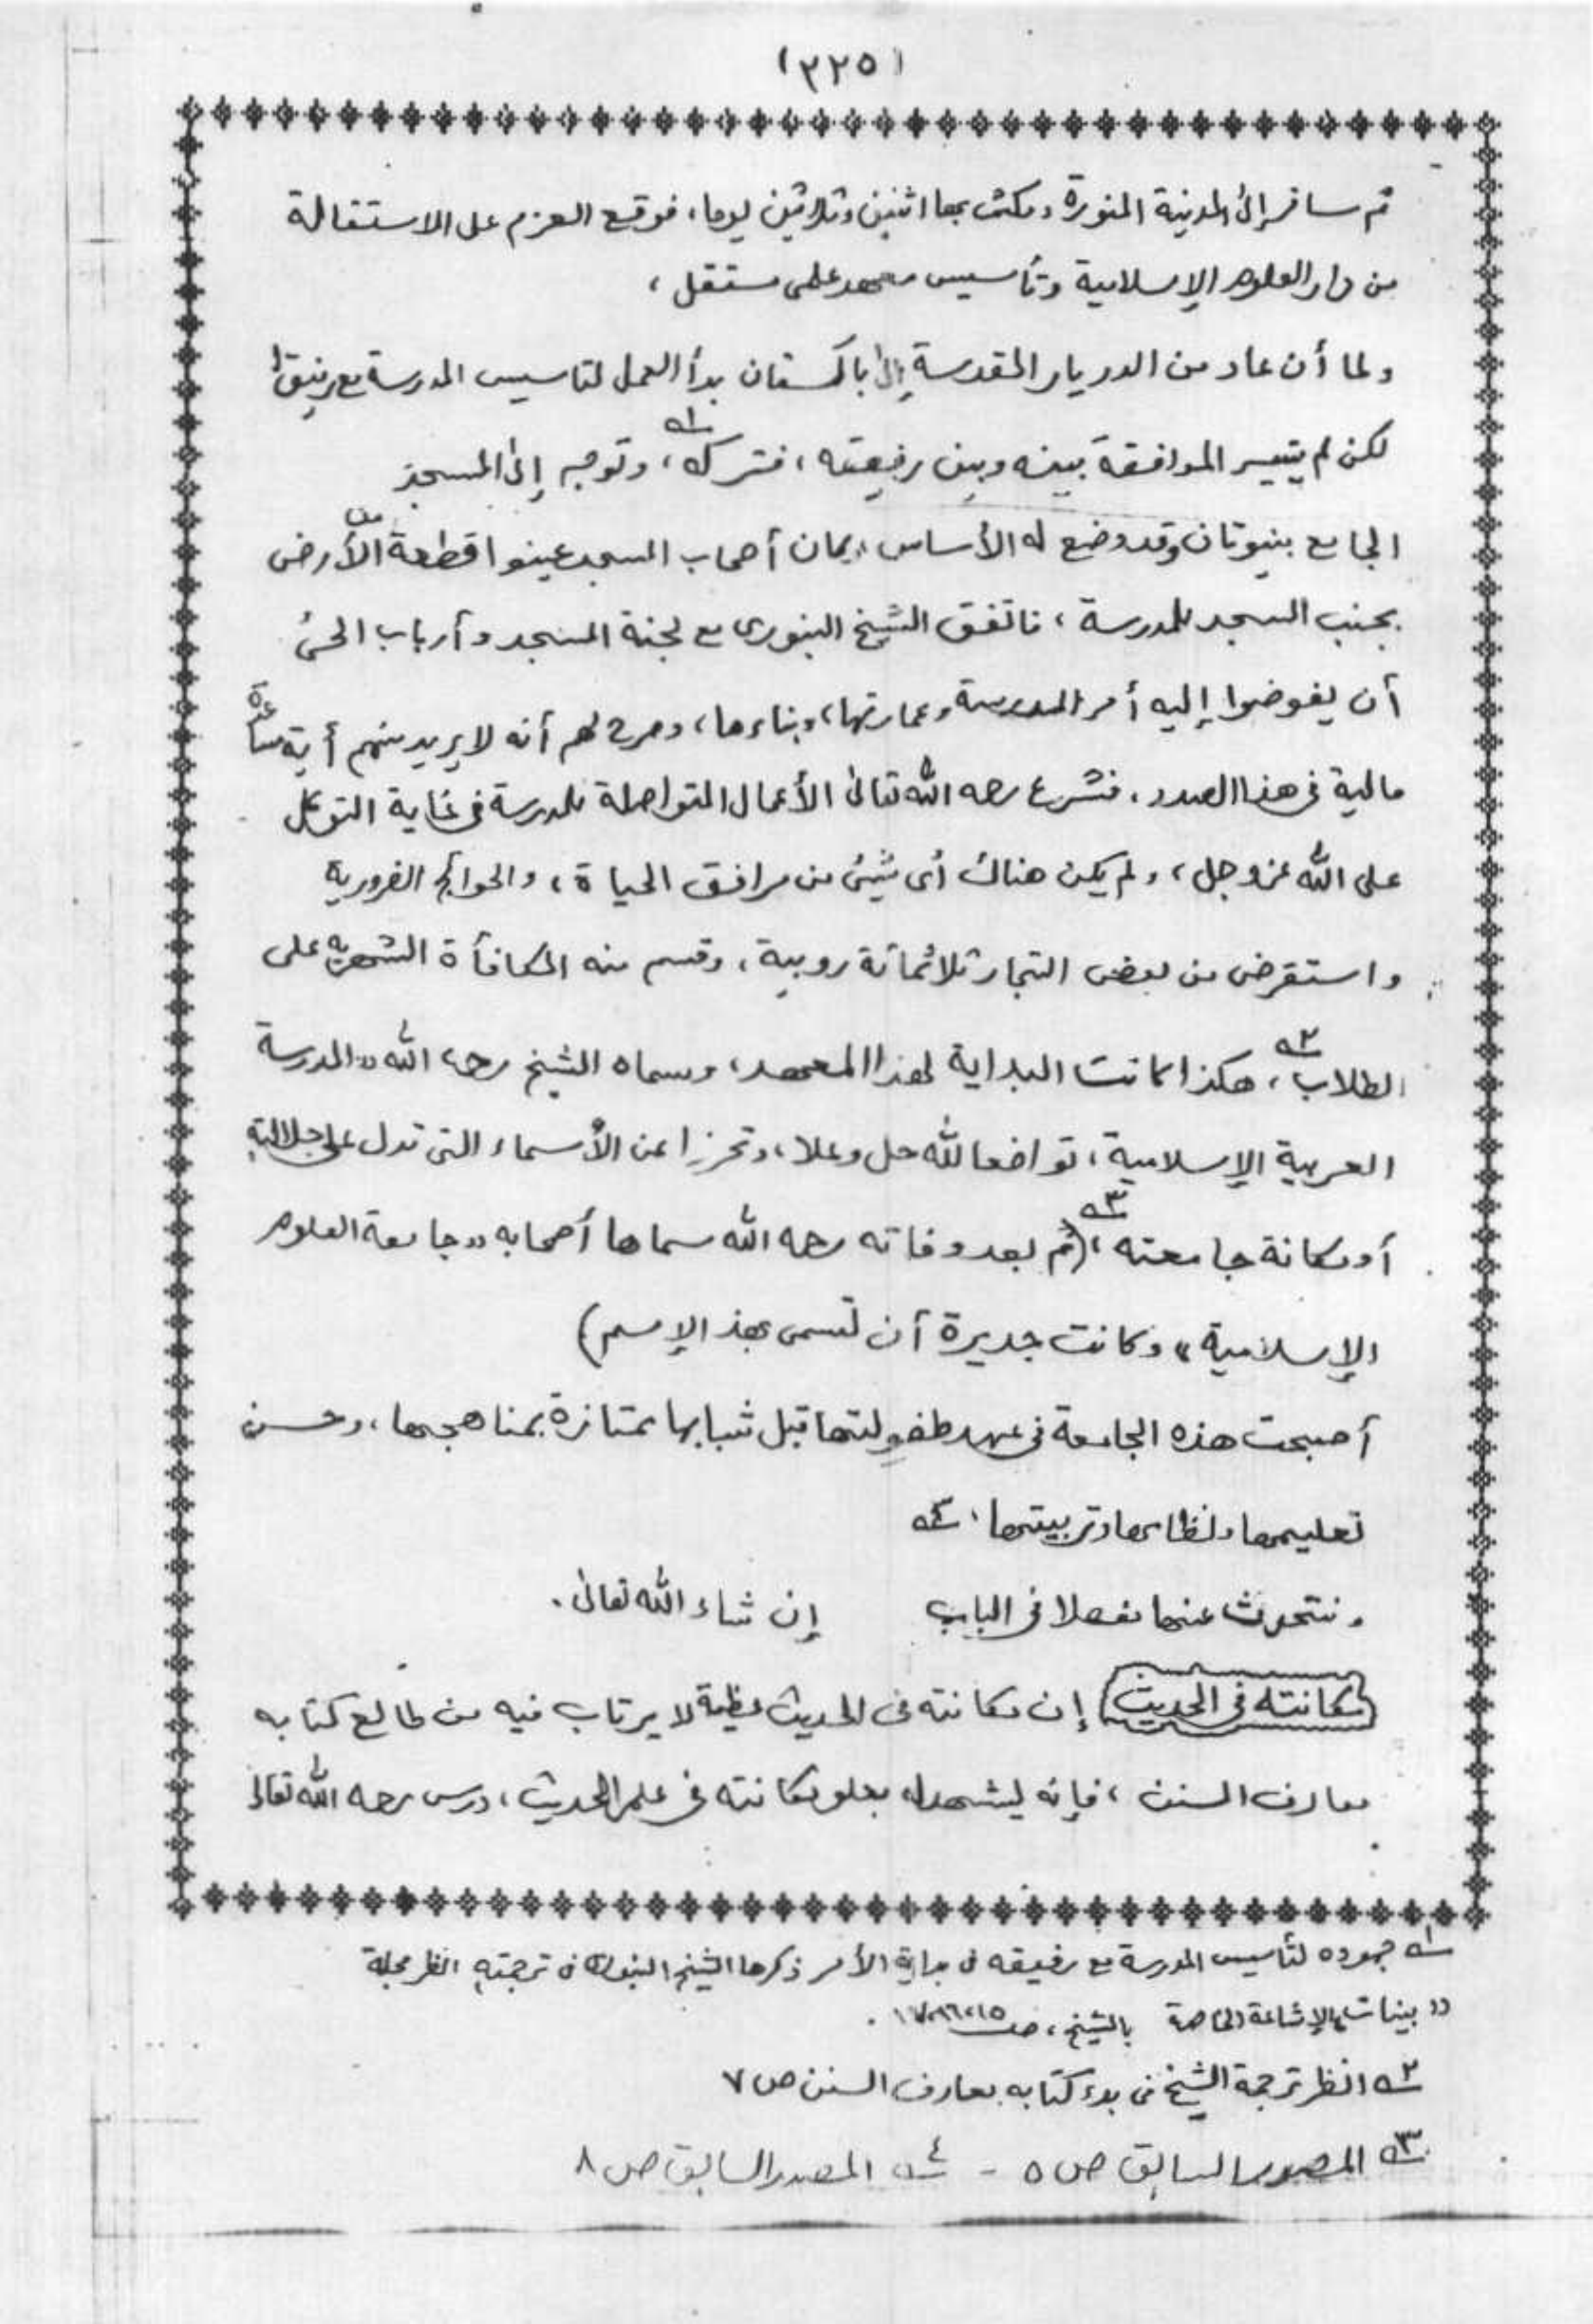 (٢٢٥)
ثم سافر إلى المدينة المنورة ومكث بها اثنين وثلاثين يوما، فوقع العزم على الاستقالة
من دار العلوم الإسلامية وتأسيس معهد علمى مستقل،
ولما أن عاد من الديار المقدسة إلى باكستان بدأ العمل لتاسيس المدرسة مع رفيق له
لكن لم يتيسر الموافقة بينه وبين رفيقته، فتركه،١ وتوجه إلى المسجد
الجامع بنيوتاؤن وقد وضع له الأساس، وكان أصحاب المسجد عينوا قطعة من الأرض
بجنب المسجد للمدرسة، فاتفق الشيخ البنورى مع لجنة المسجد وأرباب الحى
أن يفوضوا إليه أمر المدرسة وعمارتها، وبناءها، وصرح لهم أنه لا يريد منهم أية مساعدة
مالية فى هذا الصدد، فشرع رحمه الله تعالى الأعمال المتواصلة للمدرسة فى غاية التوكل
على الله عز وجل، ولم يكن هناك أى شيئ من مرافق الحياة، والحوائج الضرورية
واستقرض من بعض التجار ثلاثمائة روبية، وقسم منه المكافأة الشهرية على
الطلاب،٢ هكذا كانت البداية لهذا المعهد، وسماه الشيخ رحمه الله "المدرسة
العربية الإسلامية، تواضعا لله جل وعلا، وتحرزا عن الأسماء التى تدل على جلالته
أو مكانة جامعته،٣ (ثم بعد وفاته رحمه الله سماها أصحابه "جامعة العلوم
الإسلامية" وكانت جديرة أن تسمى بهذ الإسم)
أصبحت هذه الجامعة فى عهد طفولتها قبل شبابها ممتازة بمناهجها، وحسن
تعليمها ونظامها وتربيتها، ٤
ونتحدث عنها مفصلا فى الباب إن شاء الله تعالى.
مكانته فى الحديث إن مكانته فى الحديث عظيمة لا يرتاب فيه من طالع كتابه
معارف السنن، فإنه ليشهد له بعلو مكانته فى علم الحديث، درس رحمه الله تعالى
١ جهوده لتأسيس المدرسة مع رفيقه فى بداية الأمر ذكرها الشيخ البنورى فى ترجمته انظر مجلة
"بينات" الإشاعة الخاصة بالشيخ، ص ١٥،١٦،١٧.
٢ انظر ترجمة الشيخ فى بدء كتابه معارف السنن ص ٧
٣ المصدر السابق ص ٥ - ٤ المصدر السابق ص ٨